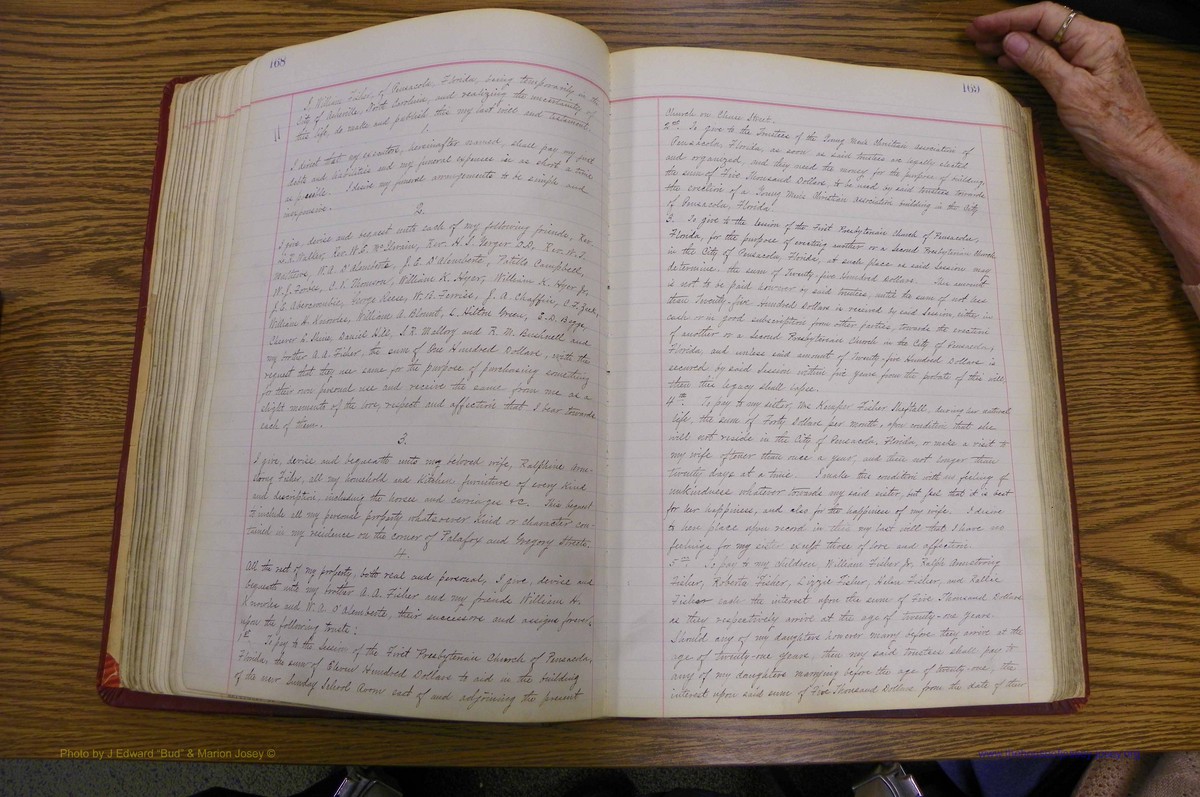 168
I William Fisher, of Pensacola, Florida, being temporarily in the
City of Asheville, North Carolina, and realizing the uncertainty of
this life, do make and publish this my last will and testament.
1.
I direct that my executors, hereinafter named, shall pay my just
debts and liabilities and my funeral expenses in as short a time
as possible. I desire my funeral arrangements to be simple and
inexpensive.
2.
I give, devise and bequest unto each of my following friends, Rev.
Rev. W. E. McIlwain, Rev. H. S. Yerger D.D., Rev. W. J.
W. A. D'Alemberte, J. E. D'Alemberte, Patillo Campbell,
W. J. Forbes, William K. Hyer, William K. Hyer Jr.
J. E. Abercrombie, George Reese, W. N. J. A. Chaffin,
William H. Knowles, William A. Blount, L. Hilton Green,
Daniel S. R. Mallory and R. M. Bushnell and
my brother A. A. Fisher, the sum of One Hundred Dollars, with the
request that they use same for the purpose of purchasing something
for their own personal use and receive the same from me as a
slight momento of the love, respect and affection that I bear towards
each of them.
3.
I give, devise and bequeath unto my beloved wife, Ralphine Arm-
strong Fisher, all my household and kitchen furniture of every kind
and description, including the horses and carriages &c. This bequest
to include all my personal property whatsoever kind or character con-
tained in my residence on the corner of Palafox and Gregory Streets.
4.
All the rest of my property, both real and personal, I give, devise and
bequeath unto my brother A. A. Fisher and my friends William H.
Knowles and W. A. D'Alemberte, their successors and assigns forever,
upon the following trusts:
1st. To pay to the Session of the First Presbyterian Church of Pensacola,
Florida the sum of Eleven Hundred Dollars to aid in the building
of the new Sunday School Room east of and adjoining the present
169
Church on Chase Street.
2nd. To give to the Trustees of the Young Mens Christian Association of
Pensacola, Florida, as soon as said trustees are legally elected
and organized, and they need the money for the purpose of building,
the sum of Five Thousand Dollars, to be used by said trustees towards
the erection of a Young Mens Christian Association building in the City
of Pensacola, Florida.
3. To give to the Session of the First Presbyterian Church of Pensacola,
Florida, for the purpose of erecting another or a Second Presbyterian Church
in the City of Pensacola, Florida, at such place as said Session may
determine, the sum of Twenty-five Hundred Dollars. This amount
is not to be paid however by said trustees, until the sum of not less
than Twenty-five Hundred Dollars is received by said Session, either in
cash or in good subscription from other parties, towards the erection
of another or a Second Presbyterian Church in the City of Pensacola,
Florida, and unless said amount of Twenty-five Hundred Dollars is
secured by said Session within five years from the probate of this will
then this legacy shall lapse.
4th. To pay to my sister, Mrs Kemper Fisher Sheftall, during her natural
life, the sum of Forty Dollars per month, upon condition that she
will not reside in the City of Pensacola, Florida, or make a visit to
my wife oftener than once a year, and then not longer than
twenty days at a time. I make this condition with no feelings of
unkindness whatever towards my said sister, but feel that it is best
for her happiness, and also for the happiness of my wife. I desire
to here place upon record in this my last will that I have no
feelings for my sister except those of love and affection.
5th. To pay to my children William Fisher Jr. Ralph Armstrong
Fisher, Roberta Fisher, Lizzie Fisher, Helen Fisher, and Kallie
Fisher each the interest upon the sum of Five Thousand Dollars
as they respectively arrive at the age of twenty-one years.
Should any of my daughters however marry before they arrive at the
age of twenty-one years, then my said trustees shall pay to
any of my daughters marrying before the age of twenty-one, the
interest upon said sum of Five Thousand Dollars from the date of their
Photo by J Edward "Bud" & Marion Josey ©